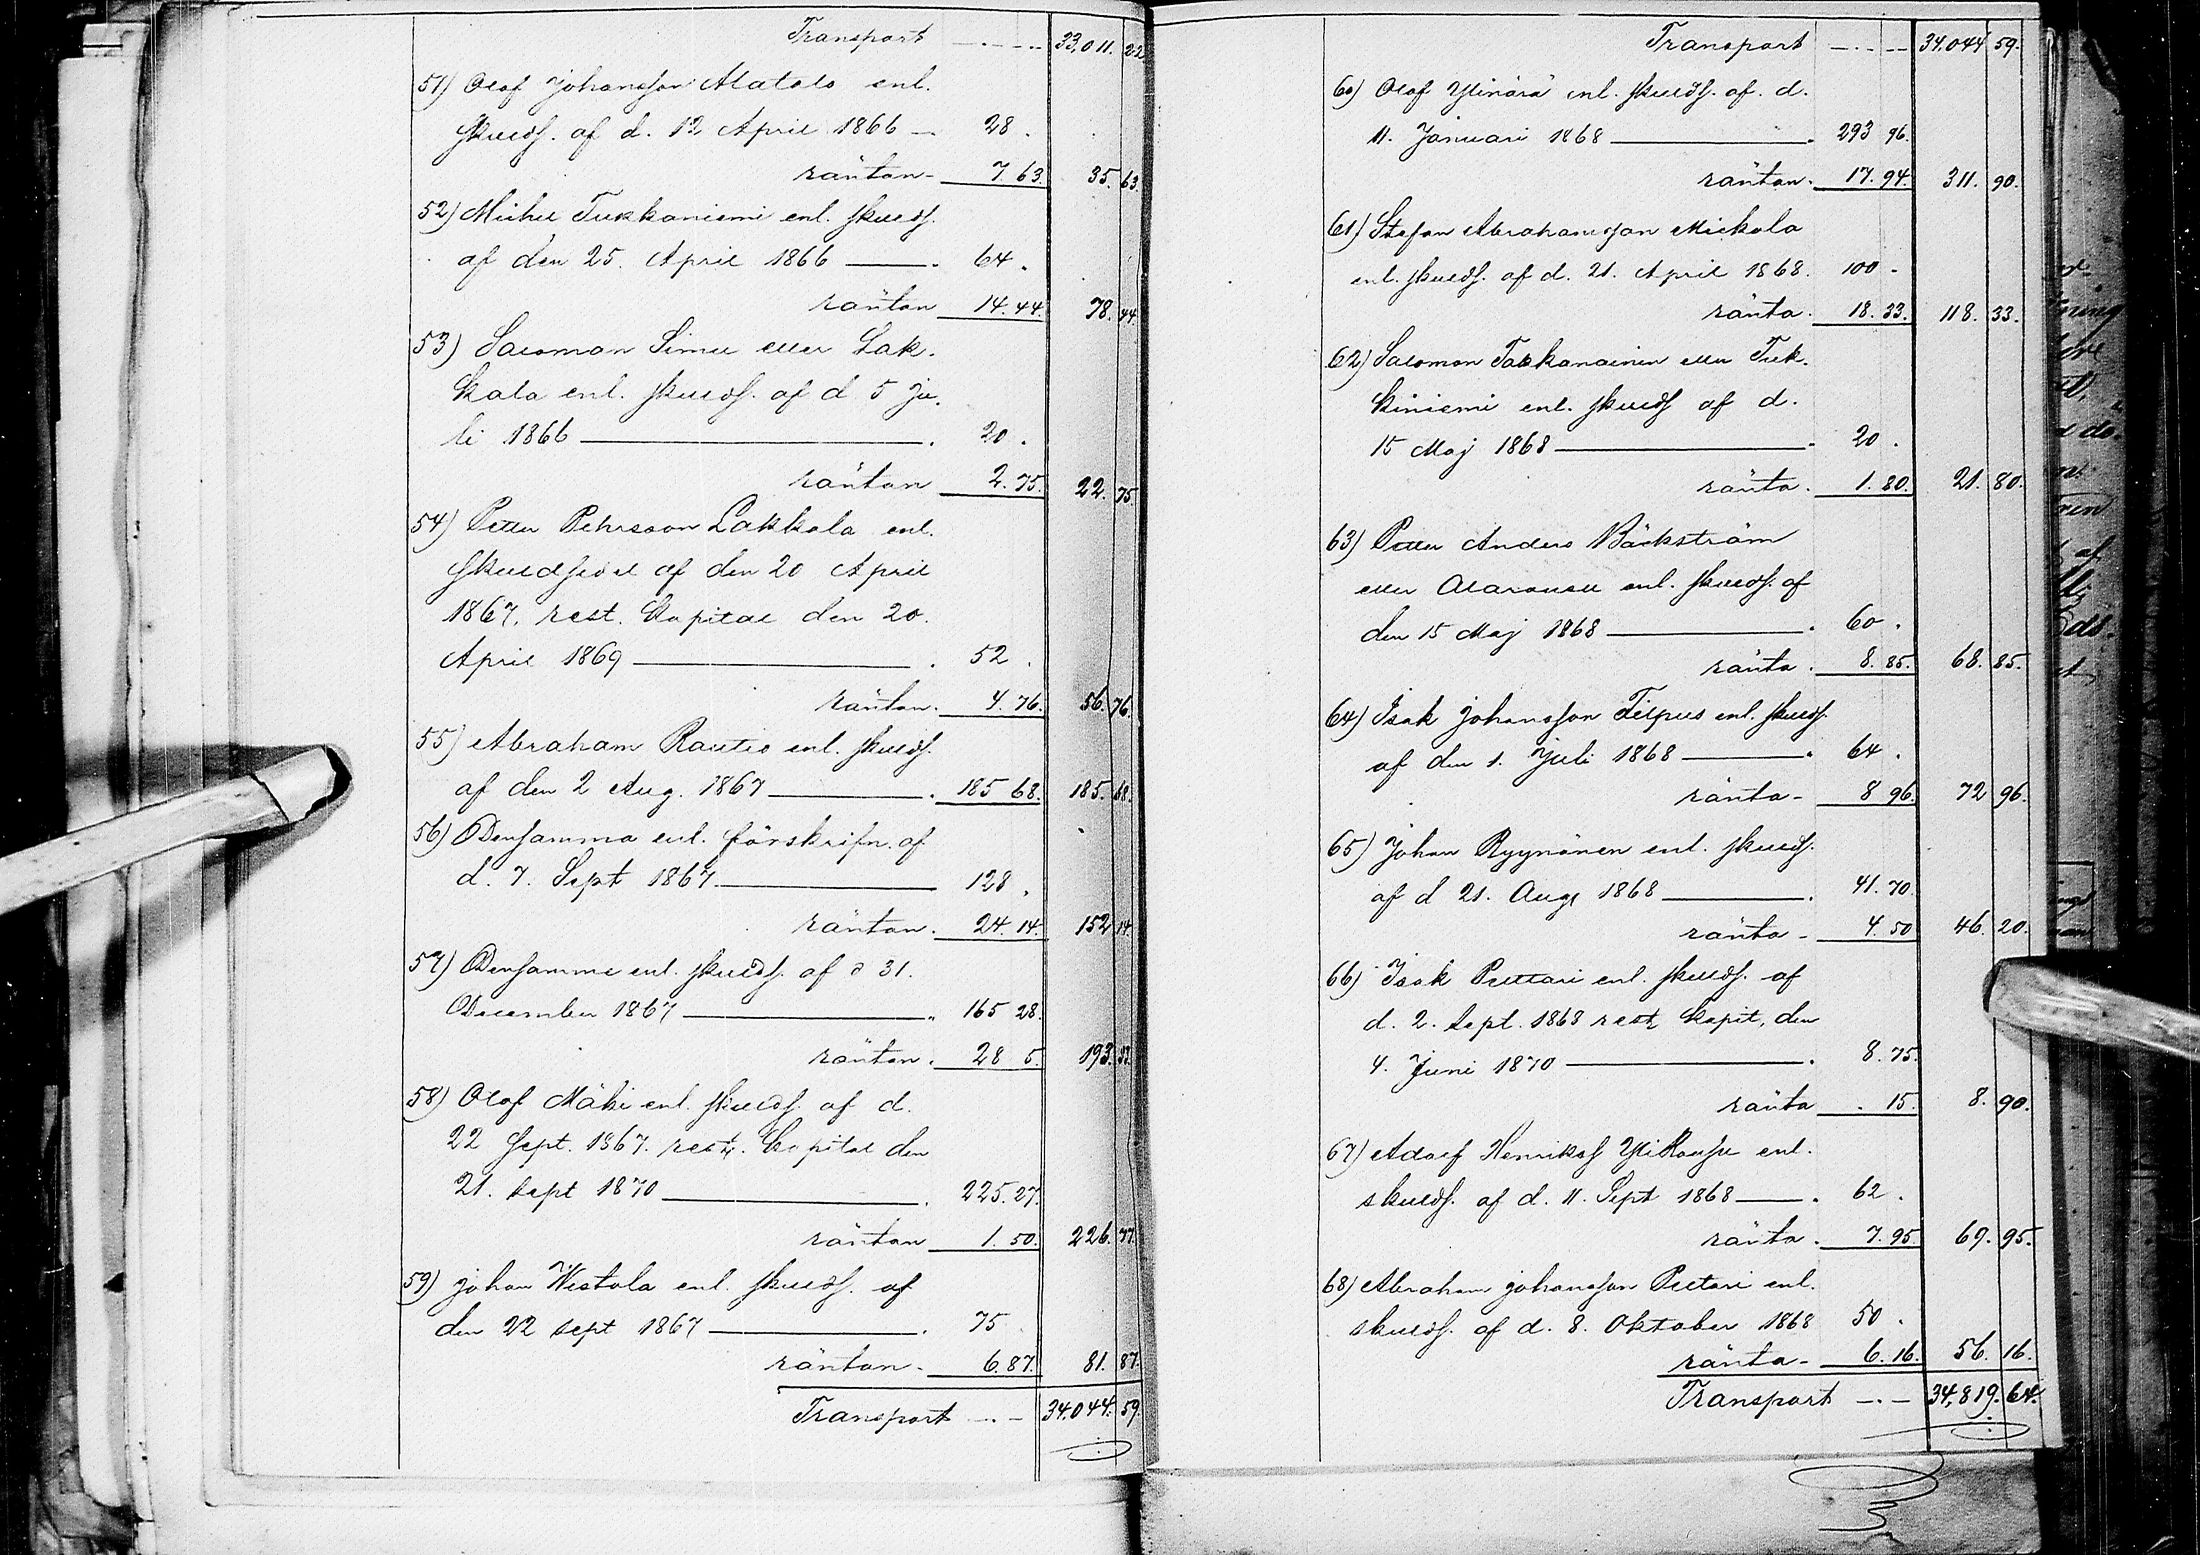 Transport 33,011. 22
51) Olof Johansson Alatalo enl.
skuldf. af d. 12 April 1866 28.
räntan 7. 63. 35. 63.
52) Michel Tukkaniemi enl. skuldf.
af den 25. April 1866 64.
räntan 14. 44. 78. 44.
53) Salomon Simu eller Lak-
kala enl. skuldf. af d 5 Ju-
li 1866 20.
räntan 2. 75. 22. 75.
54) Petter Pehrsson Lakkala enl.
skuldsedel af den 20 April
1867, rest. Kapital den 20.
April 1869 52.
räntan. 4. 76. 56. 76.
55) Abraham Rautio enl. skuldf.
af den 2 Aug. 1867 185 68. 185. 68.
56) Densamma enl. förskrifn. af
d. 7. Sept 1867. 128.
räntan. 24. 14. 152 14.
57) Densamme enl. skuldf. af d 31.
December 1867 165 28.
räntan. 28 5. 193. 33.
58) Olof Mäki enl. skuldf. af d.
22 Sept. 1867. rest. Kapital den
21. Sept 1870 225. 27.
räntan 1. 50. 226. 77.
59) Johan Wistola enl. skuldf. af
den 22 sept 1867 75
räntan. 6. 87. 81. 87.
Transport 34,044. 59.
Transport 34,044 59.
60) Olof Ylinärä enl. skuldf. af. d.
11. Januari 1868 293 96.
räntan. 17. 94. 311. 90.
61) Stefan Abrahamsson Mickola
enl. skuldf. af d. 21. April 1868. 100.
ränta. 18. 33. 118. 33.
62) Salomon Takkanainen eller Tuk-
kiniemi enl. skuldf af d.
15 Maj 1868 20.
ränta. 1. 80. 21. 80.
63) Petter Anders Bäckström
eller Alarousu enl. skuldf. af
den 15 Maj 1868 60.
ränta. 8. 85. 68. 85.
64) Isak Johansson Filpus enl. skuldf.
af den 1. Juli 1868 64.
ränta 8 96. 72 96.
65) Johan Ryynänen enl. skuldf.
af d 21. Aug. 1868 41. 70.
ränta 4. 50 46. 20.
66) Isak Pruttari enl. skuldf. af
d. 2. Sept. 1868 rest. kapit, den
4. Juni 1870 8. 75.
ränta . 15. 8. 90.
67) Adolf Henriksf YliRousu enl.
skuldf. af d. 11. Sept 1868 62.
ränta. 7. 95. 69. 95.
68) Abraham Johansson Pietari enl.
skuldf. af d. 8. Oktober 1868 50.
ränta 6. 16. 56. 16.
Transport 34,819. 64.